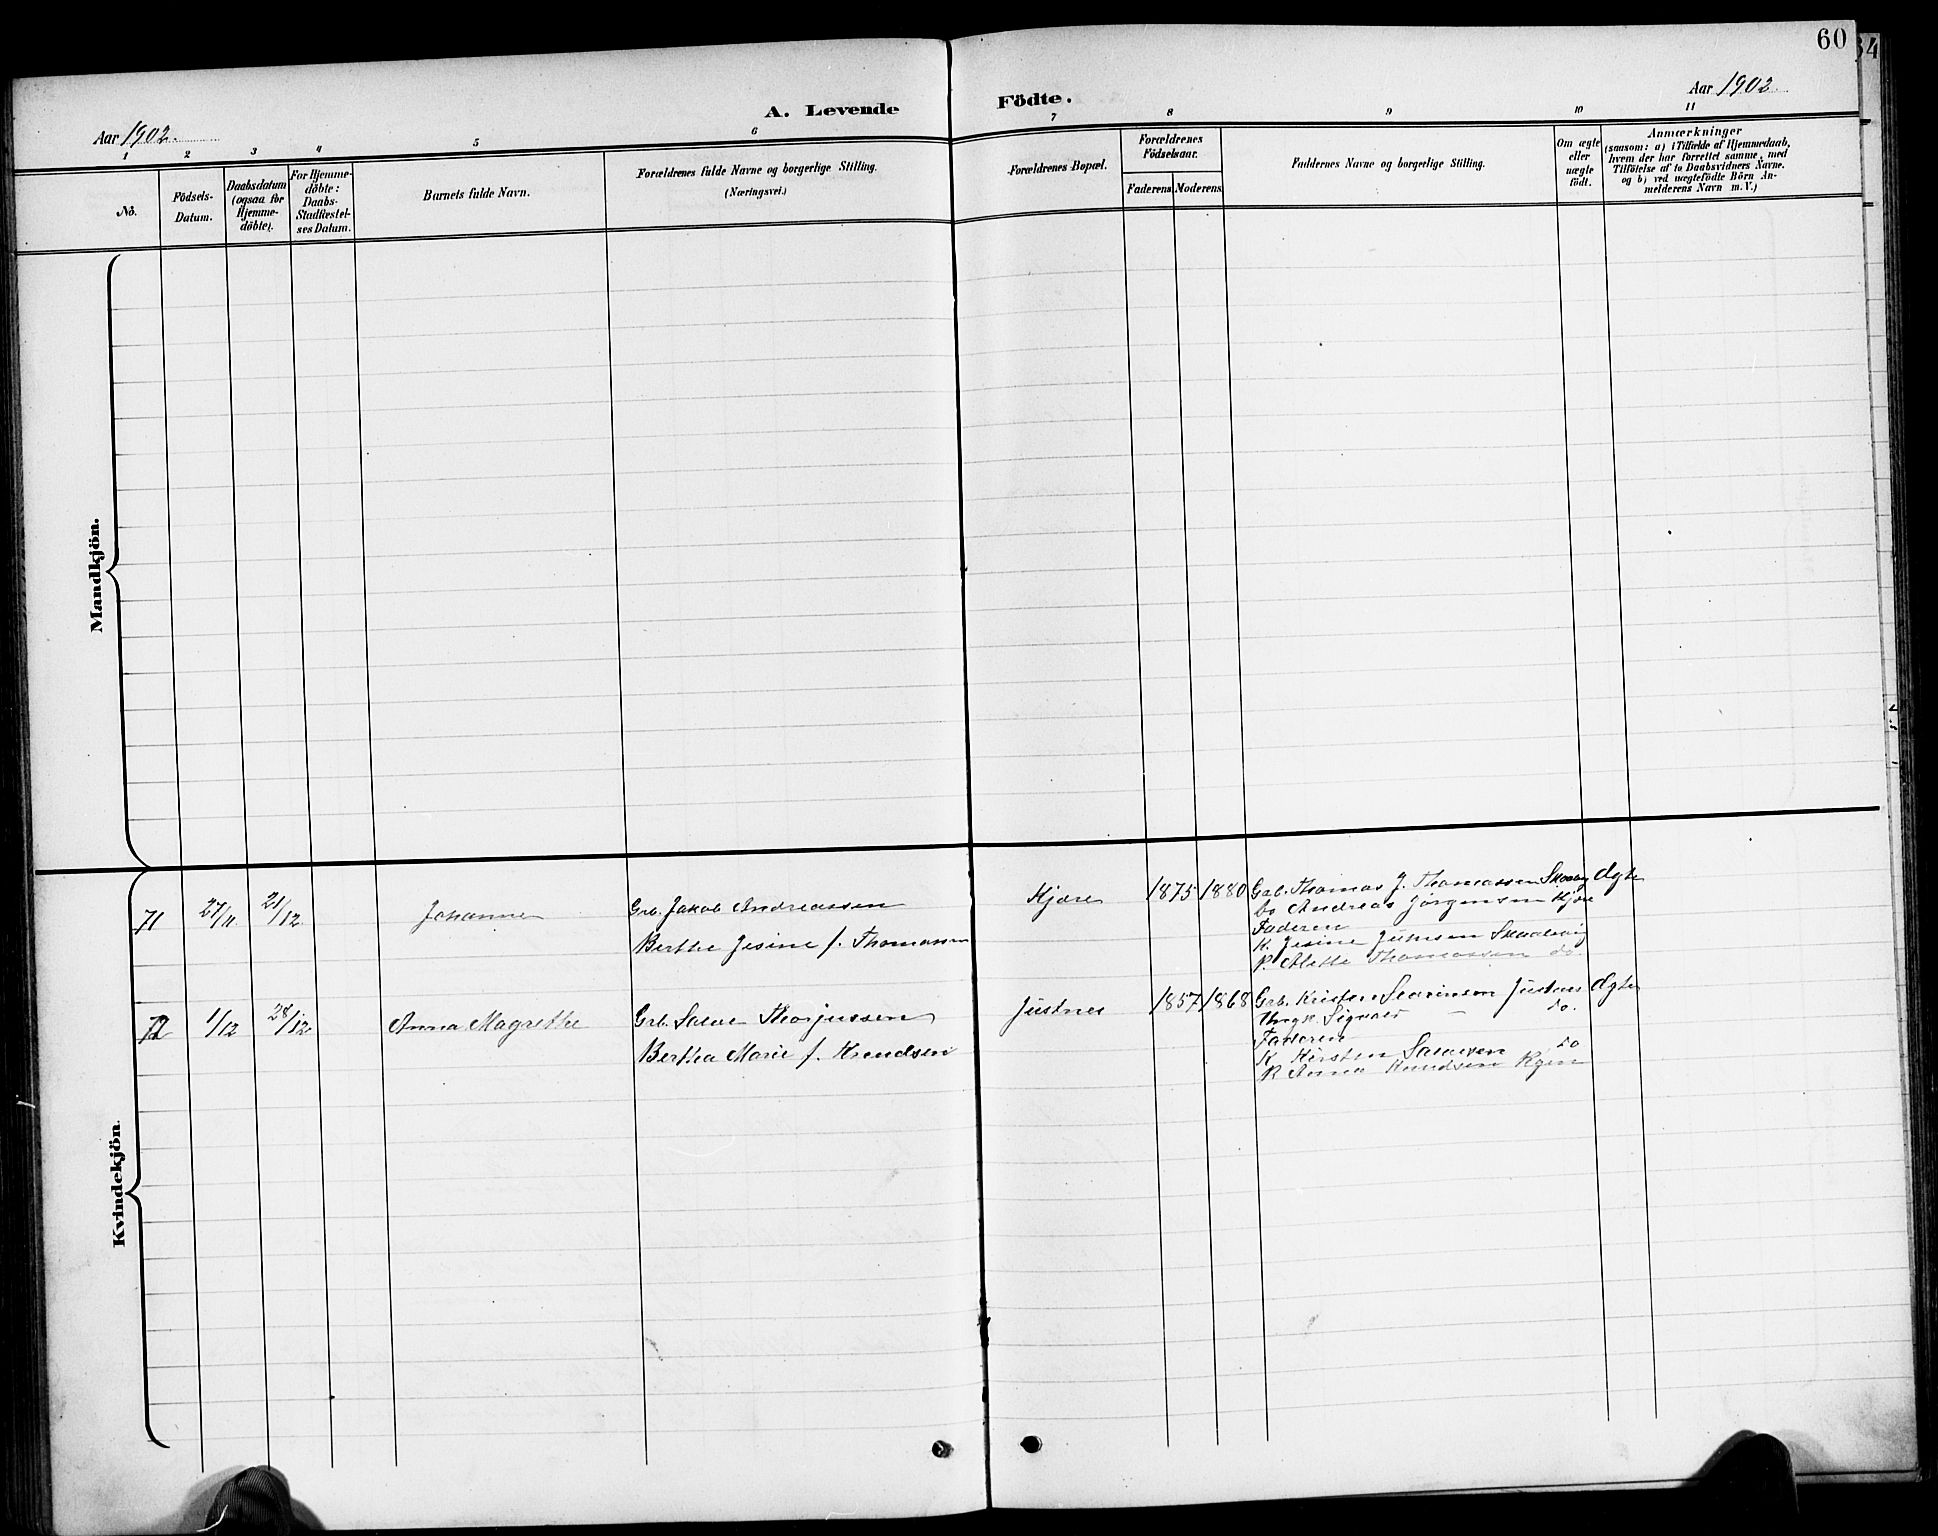 60
34
A. Levende Födte.
Aar 1902.
Aar 1902.
1 2 3 4 5 6 7 8 9 10 11
No.
Födsels-
Datum.
Daabsdatum
(ogsaa for
Hjemme-
döbte).
For Hjemme-
döbte:
Daabs-
Stadfæstel-
ses Datum.
Barnets fulde Navn.
Forældrenes fulde Navne og borgerlige Stilling.
(Næringsvei.)
Forældrenes Bopæl.
Forældrenes
Födselsaar.
Faderens
Moderens
Faddernes Navne og borgerlige Stilling.
Om ægte
eller
uægte
födt.
Anmærkninger
(saasom: a) i Tilfælde af Hjemmedaab,
hvem der har forrettet samme, med
Tilföielse af to Daabsvidners Navne.
og b) ved uægtefödte Börn An-
melderens Navn m. V.)
Mandkjön.
Kvindekjön.
71 27/11 21/12 Johanne
Grb. Jakob Andreassen
Berthe Jesine f. Thomassen
Kjære 1875 1880
Grb. Thomas J. Thomassen
do Andreas Jörgensen Kjære
Faderen
K. Jesine
P. Mette Thomassen do.
Ægte
72 1/12 28/12 Anna Magrethe
Grb. Salve Thorjussen
Berthea Marie f. Knudsen
Justnes 1857 1868
Grb. Kristen Severinsen Justnes
Ungk. Sigvald — do.
Faderen
K. Kirsten Salvesen do
P. Anna Knudsen
Ægte